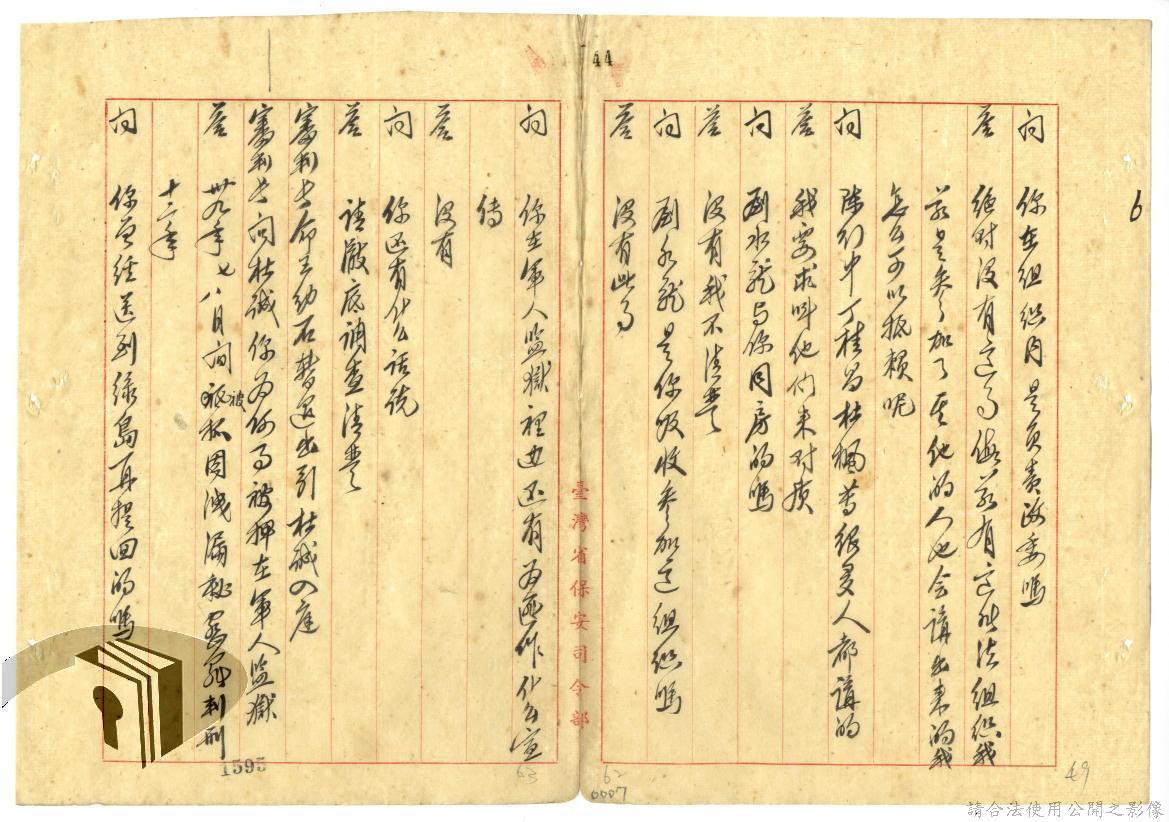 44
6
問 你在組織內是負責政委嗎
答 絕對沒有這事假若有這非法組織我
若是參加了其他的人也會講出來的我
怎么可以抵賴呢
問 陳行中丁桂昌杜楓等很多人都講的
答 我要求叫他們來對質
問 劉水龍与你同房的嗎
答 沒有我不清楚
問 劉水龍是你吸收參加這組織嗎
答 沒有此事
臺灣省保安司令部
問 你在軍人監獄裡边还有为匪作什么宣
傳
答 沒有
問 你还有什么話說
答 請澈底調查清楚
審判長命王幼石暫退出引杜誠入庭
審判長問杜誠你为何事被押在軍人監獄
答 卅九年七八月间被因洩漏秘密罪判刑
十二年
問 你曾經送到綠島再提回的嗎
1595
63
62
0007
49
請合法使用公開之影像